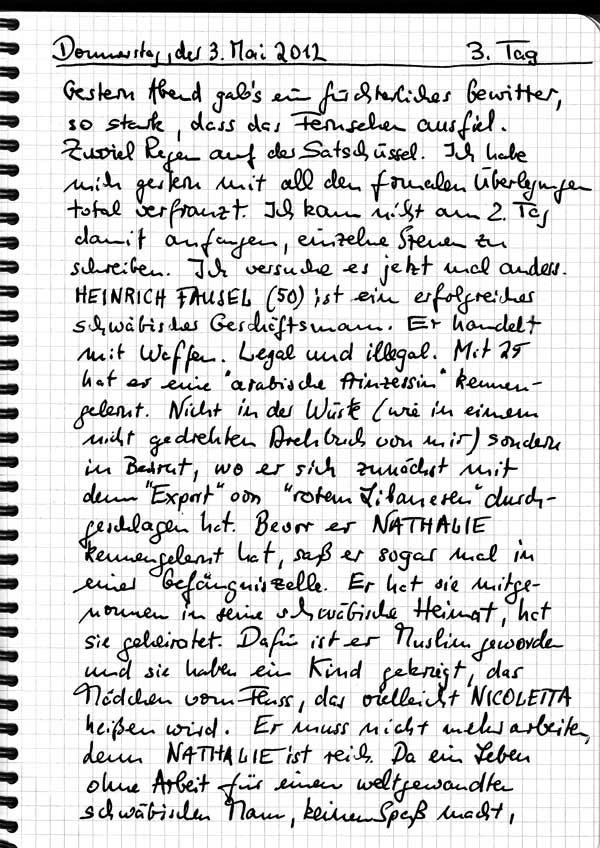 Donnerstag, der 3. Mai 2012 3. Tag
Gestern Abend gab's ein fürchterliches Gewitter,
so stark, dass das Fernsehen ausfiel.
Zuviel Regen auf der Satschüssel. Ich habe
mich gestern mit all den formalen Überlegungen
total verfranzt. Ich kann nicht am 2. Tag
damit anfangen, einzelne Szenen zu
schreiben. Ich versuche es jetzt mal anders.
HEINRICH FAUSEL (50) ist ein erfolgreicher
schwäbischer Geschäftsmann. Er handelt
mit Waffen. Legal und illegal. Mit 25
hat er eine "arabische Prinzessin" kennen-
gelernt. Nicht in der Wüste (wie in einem
nicht gedrehten Drehbuch von mir) sondern
in Beirut, wo er sich zunächst mit
dem "Export" von "rotem Libanesen" durch-
geschlagen hat. Bevor er NATHALIE
kennengelernt hat, saß er sogar mal in
einer Gefängniszelle. Er hat sie mitge-
nommen in seine schwäbische Heimat, hat
sie geheiratet. Dafür ist er Muslim geworden
und sie haben ein Kind gekriegt, das
Mädchen vom Fluss, das vielleicht NICOLETTA
heißen wird. Er muss nicht mehr arbeiten,
denn NATHALIE ist reich. Da ein Leben
ohne Arbeit für einen weltgewandten
schwäbischen Mann, keinen Spaß macht,